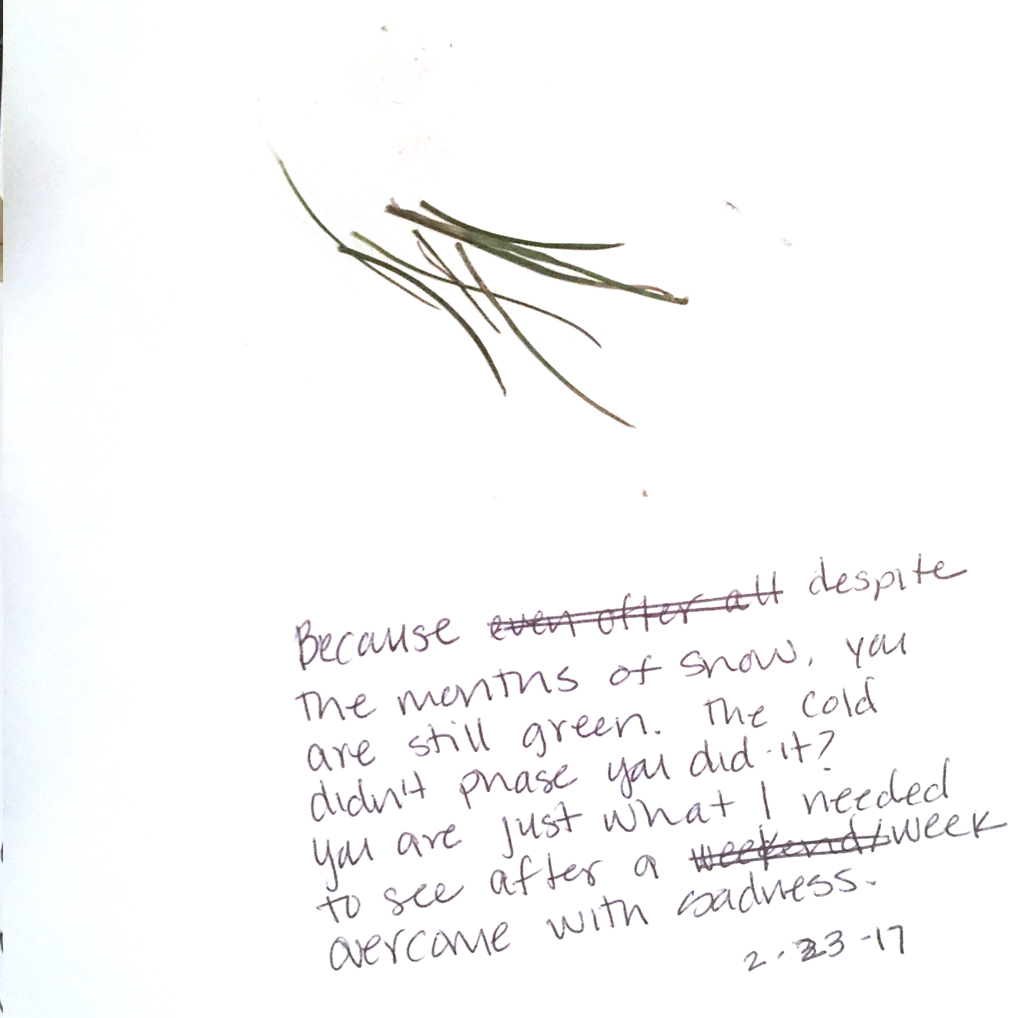 Because even after all despite
the months of snow, you
are still green. The cold
didn't phase you did it?
you are just what I needed
to see after a weekend/week
overcome with sadness.
2.23-17